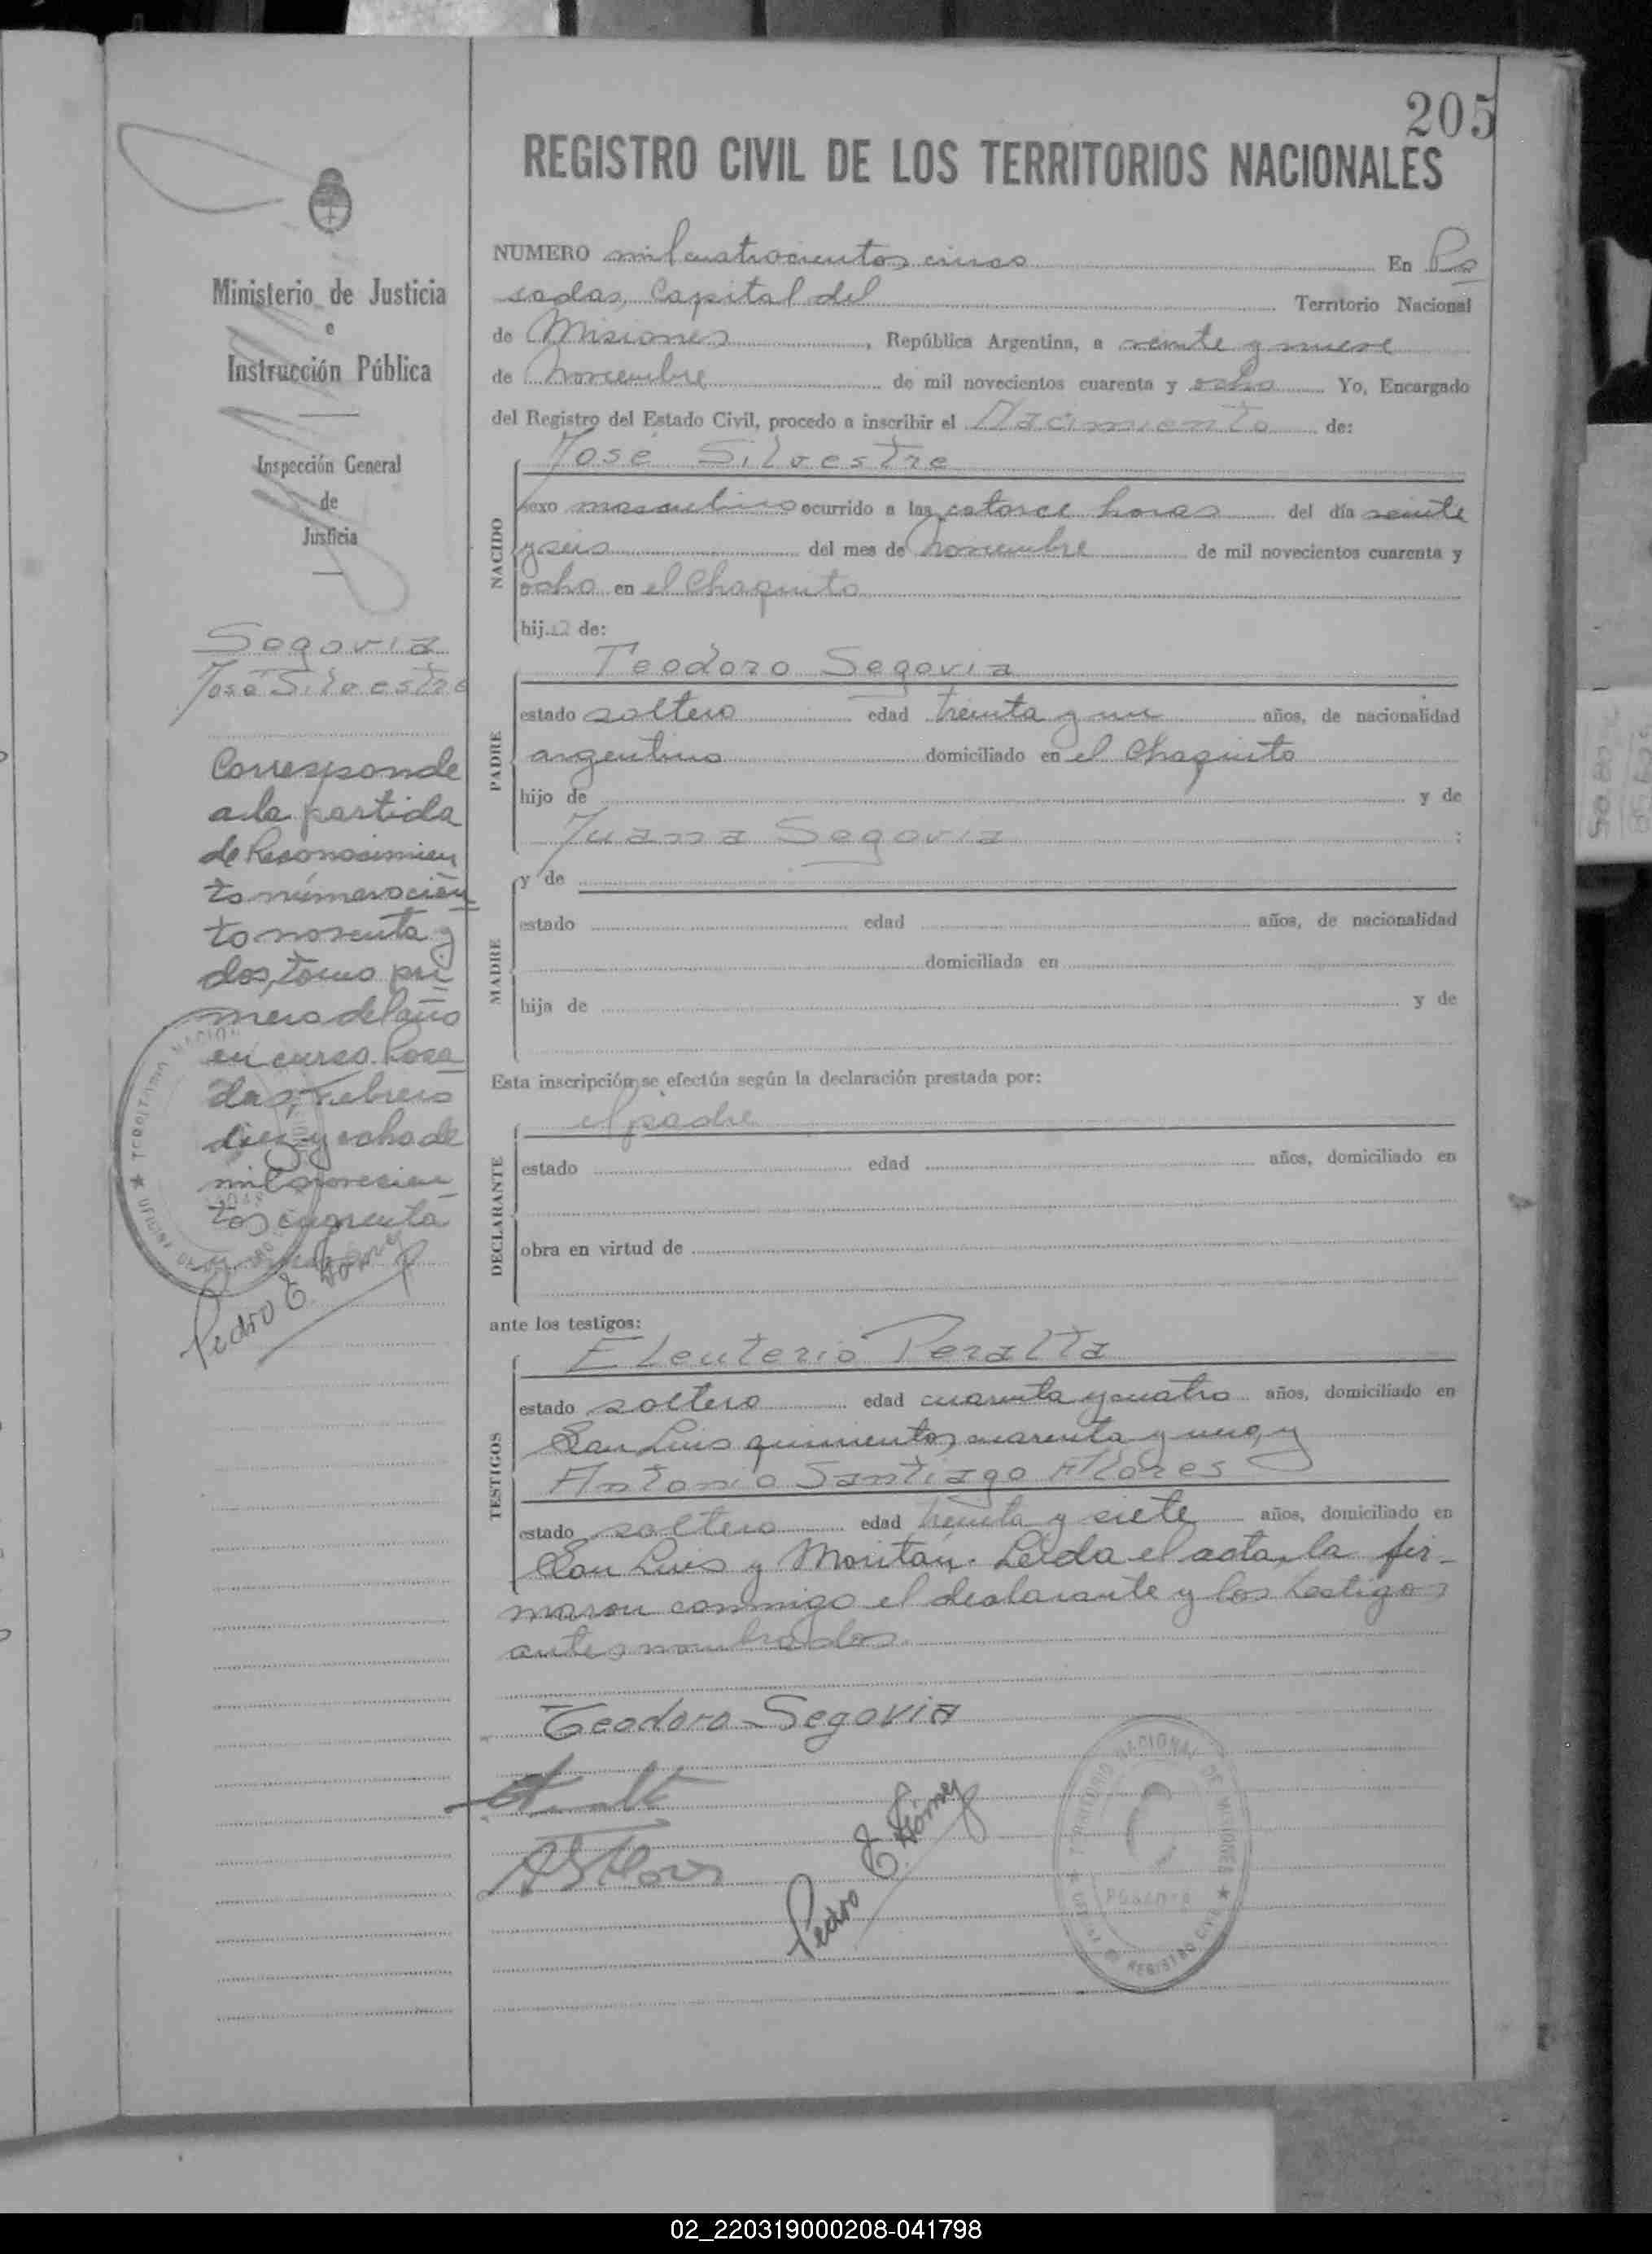 205
REGISTRO CIVIL DE LOS TERRITORIOS NACIONALES
NUMERO mil cuatrocientos cinco En Po
sadas, Capital del Territorio Nacional
de Misiones, República Argentina, a veinte y nueve
de noviembre de mil novecientos cuarenta y ocho Yo, Encargado
del Registro del Estado Civil, procedo a inscribir el Nacimiento de:
José Silvestre
NACIDO
sexo masculino ocurrido a las catorce horas del día veinte
y seis del mes de noviembre de mil novecientos cuarenta y
ocho en el Chaquito
hijo de:
Teodoro Segovia
PADRE
estado soltero edad treinta y un años, de nacionalidad
argentino domiciliado en el Chaquito
hijo de y de
Juana Segovia ;
MADRE
y de
estado edad años, de nacionalidad
domiciliada en
hija de y de
Esta inscripción se efectúa según la declaración prestada por:
el padre
DECLARANTE
estado edad años, domiciliado en
obra en virtud de
ante los testigos:
Eleuterio Peralta
TESTIGOS
estado soltero edad cuarenta y cuatro años, domiciliado en
San Luis quinientos cuarenta y uno, y
Antonio Santiago Flores
estado soltero edad treinta y siete años, domiciliado en
San Luis y Moritán. Leída el acta, la fir-
maron conmigo el declarante y los testigos
antes nombrados.
Teodoro Segovia
ASFlores
Pedro E. Gómez
TERRITORIO NACIONAL DE MISIONES
POSADAS
REGISTRO CIVIL
Ministerio de Justicia
e
Instrucción Pública
Inspección General
de
Justicia
Segovia
José Silvestre
Corresponde
a la partida
de Reconocimien
to número cien
to noventa y
dos, tomo pri
mero del año
en curso. Posa
das, Febrero
diez y ocho de
mil novecien
tos cuarenta
Pedro E. Gómez
02_220319000208-041798